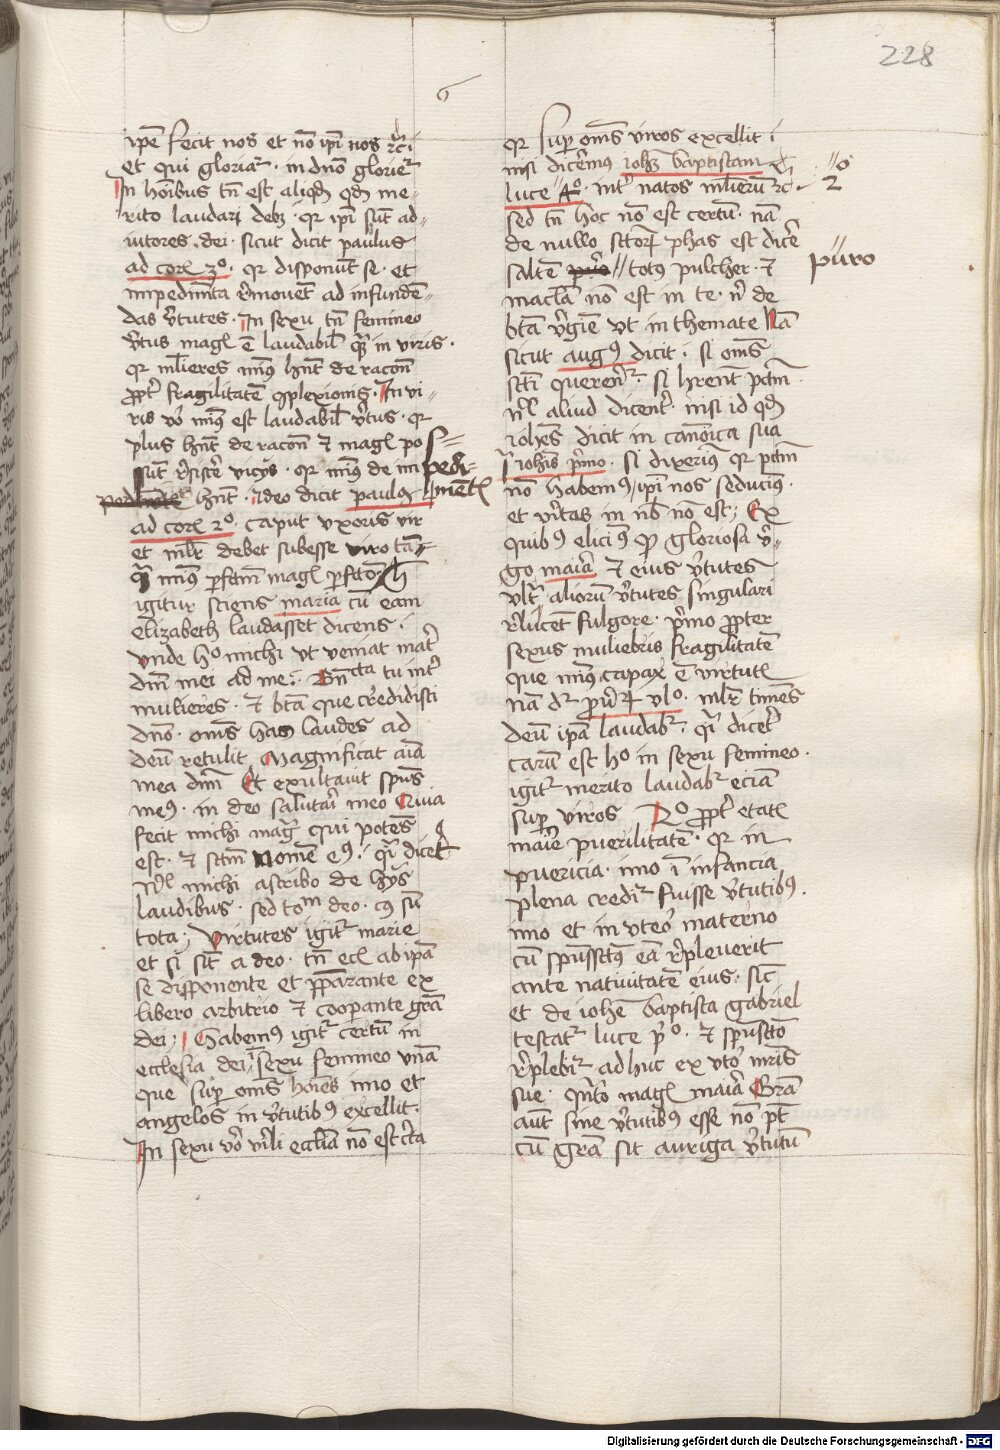 228
6
ipē fecit nos et nō ipī nos rc̄ i
et qui gloriat᷑ · in dn̄o gloriet᷑
In hōibus tn̄ est aliqd̄ qd̄ me-
rito laudari debꝫ · qꝛ ipī sūt ad-
iutores dei · sicut dicit paulus
ad corꝭ 3º · qꝛ disponūt se · et
impedimēta remouēt ad infundē-
das v̓tutes · In sexu tn̄ femineo
v̓tus magꝭ ē laudabilꝭ qꝫ in viris ·
qꝛ ml̓ieres min⁹ hn̄t de racōn̄
ꝓpt̓ fragilitatē ꝯplexionis · In vi-
ris v̓o min⁹ est laudabilꝭ v̓tus · qꝛ
plus hn̄t de racōn̄ ⁊ magꝭ pos-
sūt resist̓e vicijs · qꝛ min⁹ de impedi-
mētꝭ hn̄t · Ideo dicit paulꝰ
ad corꝭ 2º · caput vxoris vir
et ml̓r debet subesse viro tā-
qꝫ min⁹ ꝑfctm̄ magꝭ ꝑfcto · h̄
igitur sciens maria cū eam
Elizabeth laudasset dicens i
vnde hº michi vt veniat mat̓
dn̄i mei ad me · Bn̄cta tu int̓
mulieres · ⁊ btā que credidisti
dn̄o · om̄s has laudes ad
deū retulit Magnificat aīa
mea dn̄m Et exultauit spūs
me⁹ · in deo salutari meo Quia
fecit michi mag̓ qui potēs
est · ⁊ sctm̄ nomē e⁹ · i q̓ dic̓et
Nl̓ michi ascribo de hijs
laudibus · sed toᵐ deo · c⁹ sū
tota · Virtutes igit᷑ marie
et si sīt a deo · tn̄ ecꝭ ab ipā
se disponente et p̄parante ex
libero arbitrio ⁊ cooperante gr̄a
dei · Habem⁹ igit᷑ certū in
ecclesia dei ī sexu femineo vnā
que suꝑ om̄s hōies imo et
angelos in v̓tutib⁹ excellit ·
In sexu v̓o v̓ili eccl̓ia nō est c̓ta
qꝛ suꝑ om̄s viros excellit i
nisi dicerem⁹ ioh̄ꝫ baptistam
luce º · int̓ natos ml̓ierū rc̄
// º
2
sed tn̄ hoc nō est certū · nā
de nullo sctoꝝ phas est dic̓e
saltē // totus pulcher · ⁊
// puro
macl̓a nō est in te · n̓ de
btā v̓gīe vt in themate Nā
sicut aug⁹ dicit · si om̄s
sctī querent᷑ · si hr̄ent pctm̄ ·
nl̓ aliud dicent̓ · nisi id qd̄
ioh̄es dicit in canōica sua
i ioh̄is p̓mo · si dixerim⁹ qꝛ pctm̄
nō habem⁹ / ipī nos seducim⁹ ·
et v̓itas in nob̄ nō est · Ex
quib⁹ elicim⁹ ꝙ gloriosa v̓-
go maīa ⁊ eius v̓tutes
vlt̓ aliorū v̓tutes singulari
relucēt fulgore · p̓mo ꝓpter
sexus muliebris fragilitatē
que min⁹ capax ē virtutꝭ
nā d᷑ puͤ vlº · ml̓r timēs
deū ipā laudab᷑ · q̓ dic̓et
carū est hº in sexu femineo ·
igit᷑ merito laudab᷑ eciā
suꝑ viros 2º ꝓpt̓ etatꝭ
maīe puerilitatē · qꝛ in
puericia · imo ī infancia
plena credit᷑ fuisse v̓tutib⁹ ·
imo et in vt̓eo materno
cū spūssctūs eā repleuerit
ante natiuitatē eius · sic̄
et de ioh̄e baptista gabriel
testat᷑ luce p̓º · ⁊ spūsctō
replebit᷑ adhuc ex vt̓o mr̄is
sue · qn̓to magꝭ maīa Gr̄a
aūt sine v̓tutib⁹ esse nō pt̄
cū gr̄a sit auriga v̓tutū
Digitalisierung gefördert durch die Deutsche Forschungsgemeinschaft - DFG